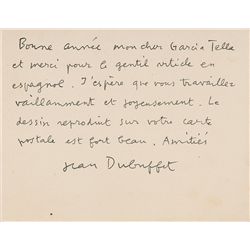 Bonne année mon cher Garcia Tella
et merci pour le gentil article en
espagnol. J'espère que vous travaillez
vaillamment et joyeusement. Le
dessin reproduit sur votre carte
postale est fort beau. Amitiés
Jean Dubuffet